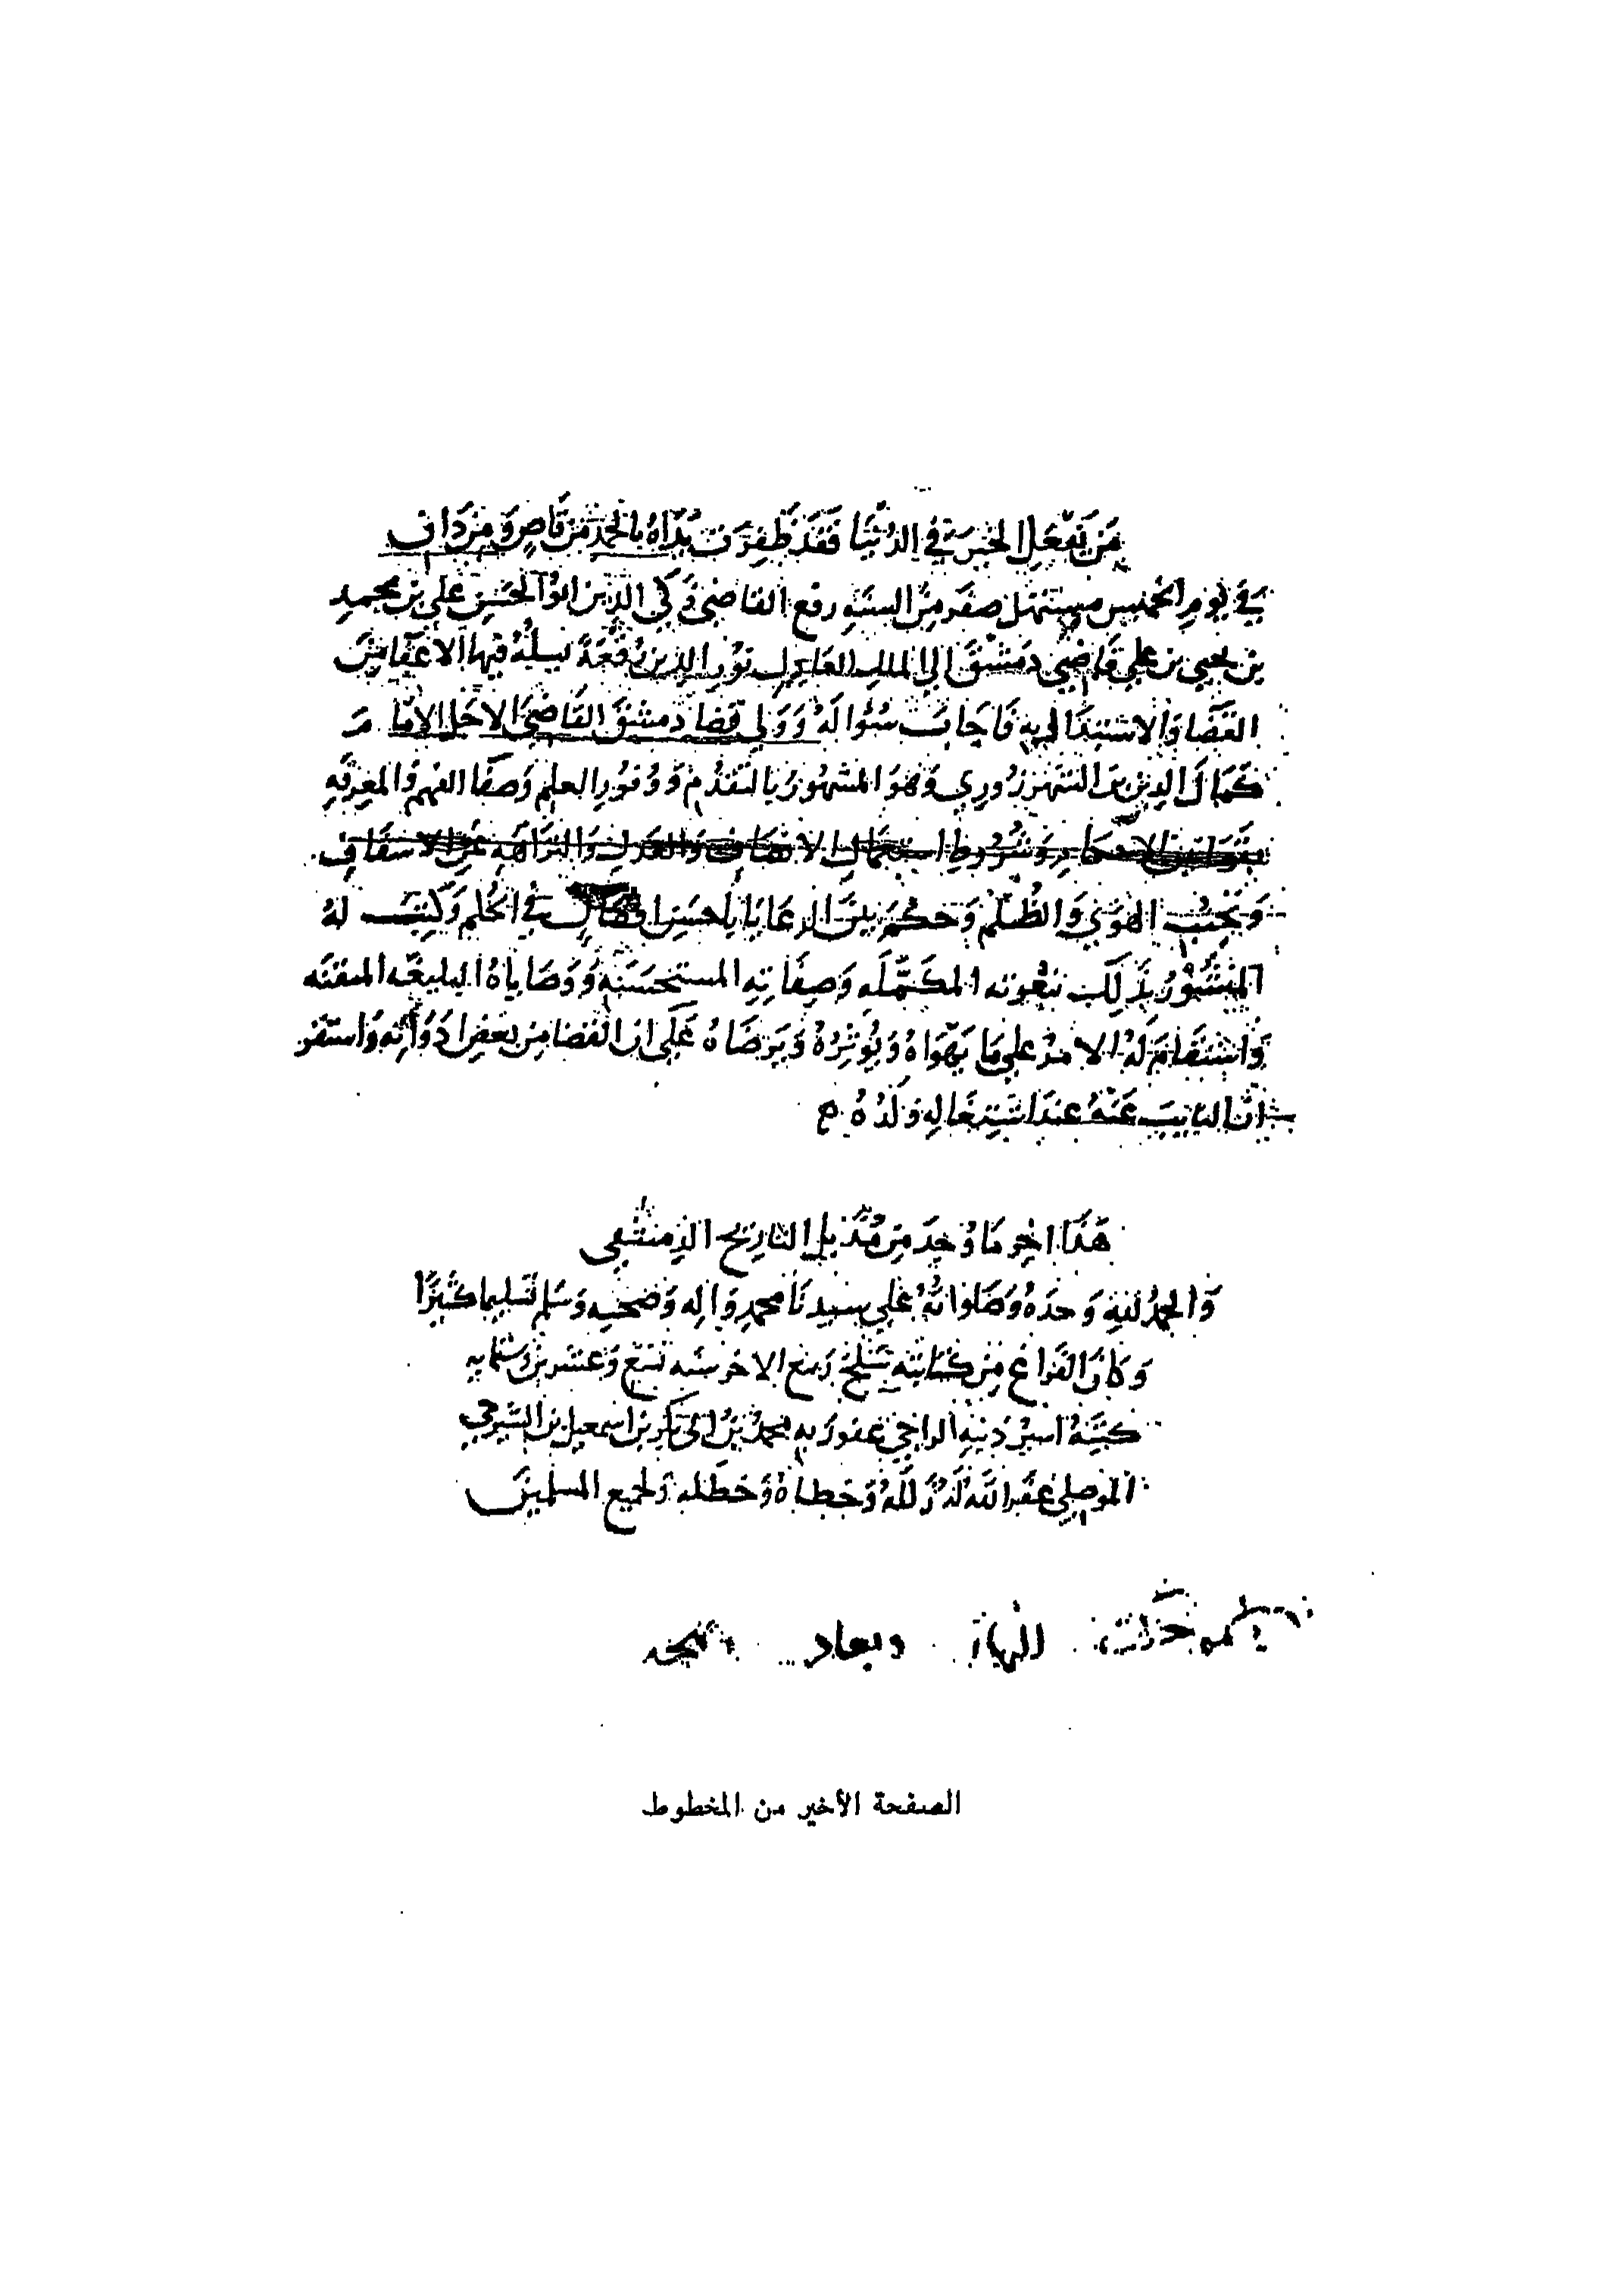 مَن يَفعَلِ الخير في الدُنيَا فَقَد ظَفِرَت يَدَاهُ بالحَمد مِن قَاصٍ وَمِن دَانِ
في يَومِ الخميس مستهل صفر مِنَ السنَهِ رفع القاضي زكي الدين ابوُ الحسَن علي بن محمدِ
بن يحيي بن علي قاضِي دمَشقَ الي الملك العَادِل نوُر الدين رُقعَةً يسلُهُ فيها الاعفَا مِنَ
القضَا وَالاستبدَال بهِ فَاجَابَ سُئوالهُ وَوَلي قضَا دمشقَ القَاضِيَ الاجَل الامَا مَ
كمَالَ الدين بن الشهرزُورِي وَهوَ المشهوُرُ بالتقدُم وَوُفوُرِ العلم وَصفَا الفهم وَالمعرفَهِ
بقوَانين الاحكامِ وَشُرُوطِ استعمَالِ الانصَاف وَالعَدلِ وَالنزَاهَهِ عَن الاسفَافِ
وَتجنُبِ الهوَي وَالظُلم وَحكمَ بينَ الرعَايَا باحسَن افعَال في الحُكم وَكُتِبَ لهُ
المنشُورُ بذَلِكَ بنعُوته المكمَّلَه وَصِفَاتهِ المستحسَنهِ وَوَصَايَاهُ البليغَه المتقنَه
وَاستقَامَ لَهُ الامرُ علي مَا يَهوَاهُ وَيُوثِرُهُ وَيَرضَاهُ عَلَي ان القضَا مِن بعضِ ادَوَاتِهِ وَاستقر
انَّ النايبَ عَنهُ عندَ اشتِغَالِهِ وَلَدُهُ
هَذَا اخِرُ مَا وُجدَ مِن مُذَيل التاريخ الدِمشقي
وَالحمدُ للهِ وَحدَهُ وَصَلوَاتهُ عَلي سيدنَا محمدٍ وَاله وَصحبه وَسَلم تسليما كثيرًا
وَكانَ الفَرَاغ مِن كتابته سَلخ رَبيع الاخر سنَه تسع وَعشرين وَستمايه
كتبَهُ اسيرُ ذنبهِ الراجي عفو رَبهِ محمدُ بنُ ابى بكر بن اسمعيل بن الشيرجي
الموصِلي غفَر اللهُ لَهُ زَللَهُ وَخطاهُ وَخطَله وَلجميع المسلمينَ
الصفحة الأخير من المخطوط